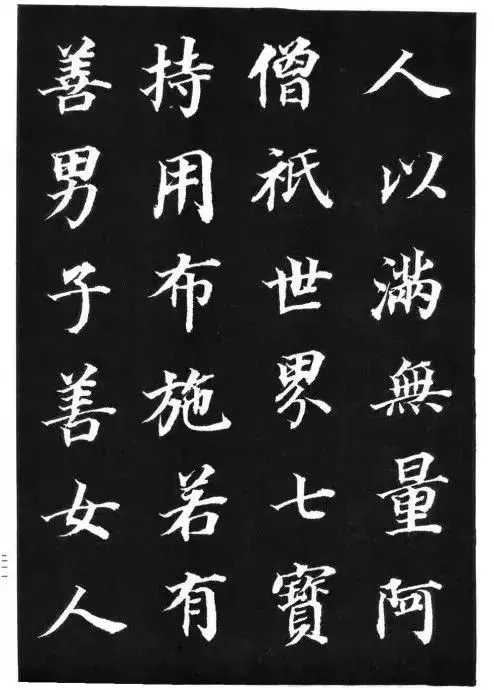 人以滿無量阿
僧祇世界七寶
持用布施若有
善男子善女人
二二一